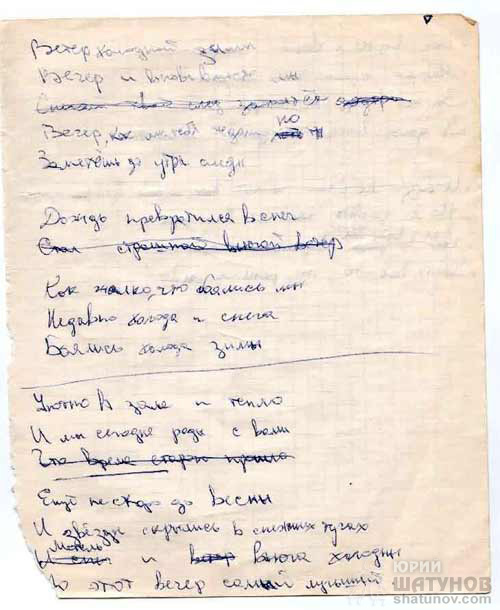 Ветер холодной зимы
Вечер и вновь вместе мы
Вечер, как
но
Заметёшь до утра следы
Дождь превратился в снег
Стал страшной вьюгой ветер
Как жалко, что боялись мы
Недавно холода и снега
Боялись холода зимы
Уютно в зале и тепло
И мы сегодня рады с вами
Что время старое прошло
Ещё не скоро до весны
И звёзды скрылись в снежных тучах
Метель
и вьюга холодны
Но этот вечер самый лучший
ЮРИЙ
ШАТУНОВ
shatunov.com